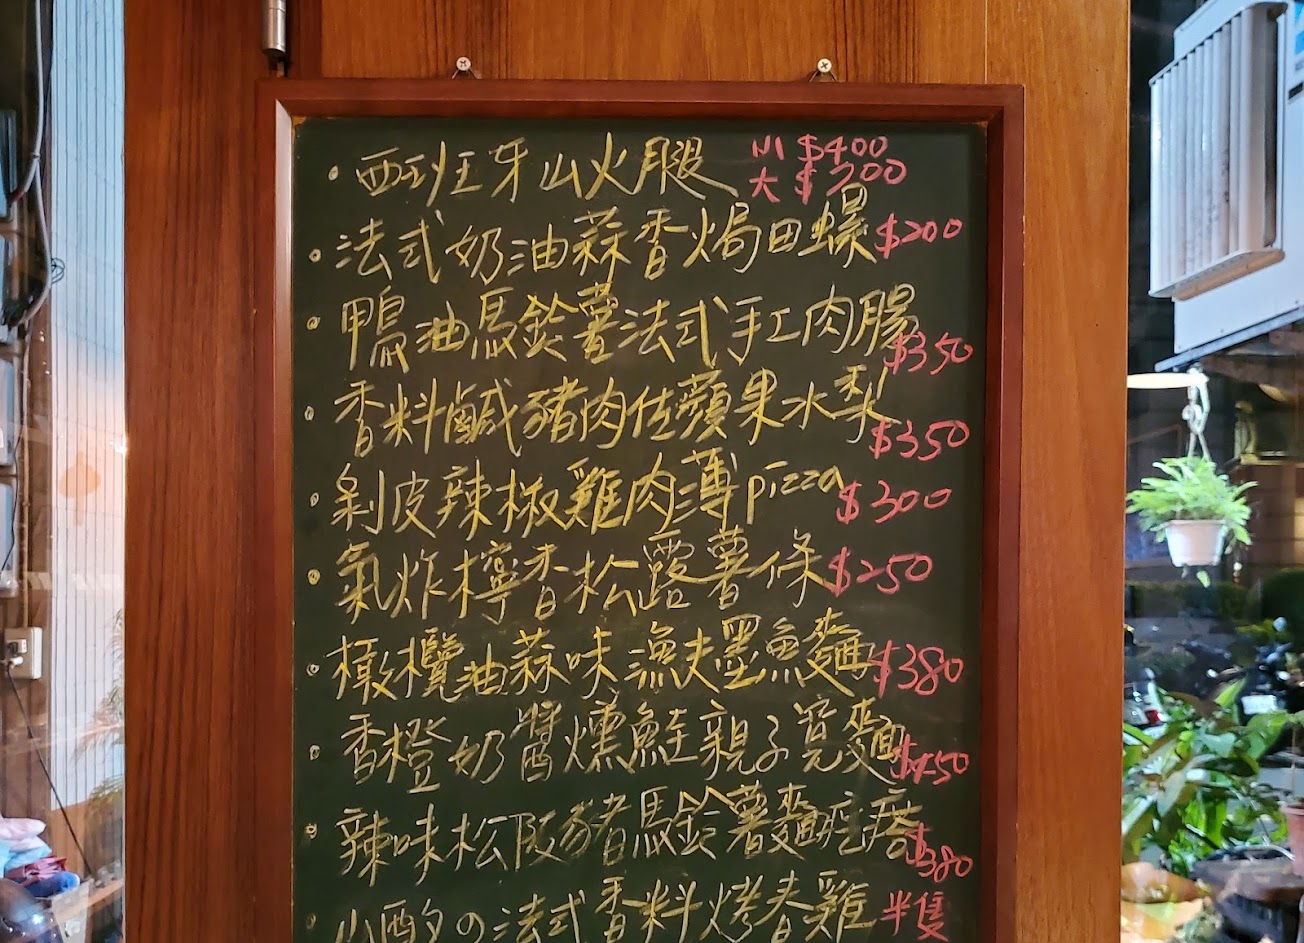 西班牙火腿 小 $400
大 $700
法式奶油蒜香焗田螺 $200
鴨油馬鈴薯法式手工肉腸 $350
香料鹹豬肉佐蘋果水梨 $350
剝皮辣椒雞肉薄pizza $300
氣炸檸香松露薯條 $250
橄欖油蒜味漁夫墨魚麵 $380
香橙奶醬燻鮭親子寬麵 $450
辣味松阪豬馬鈴薯麵疙瘩 $380
法式香料烤春雞 半隻